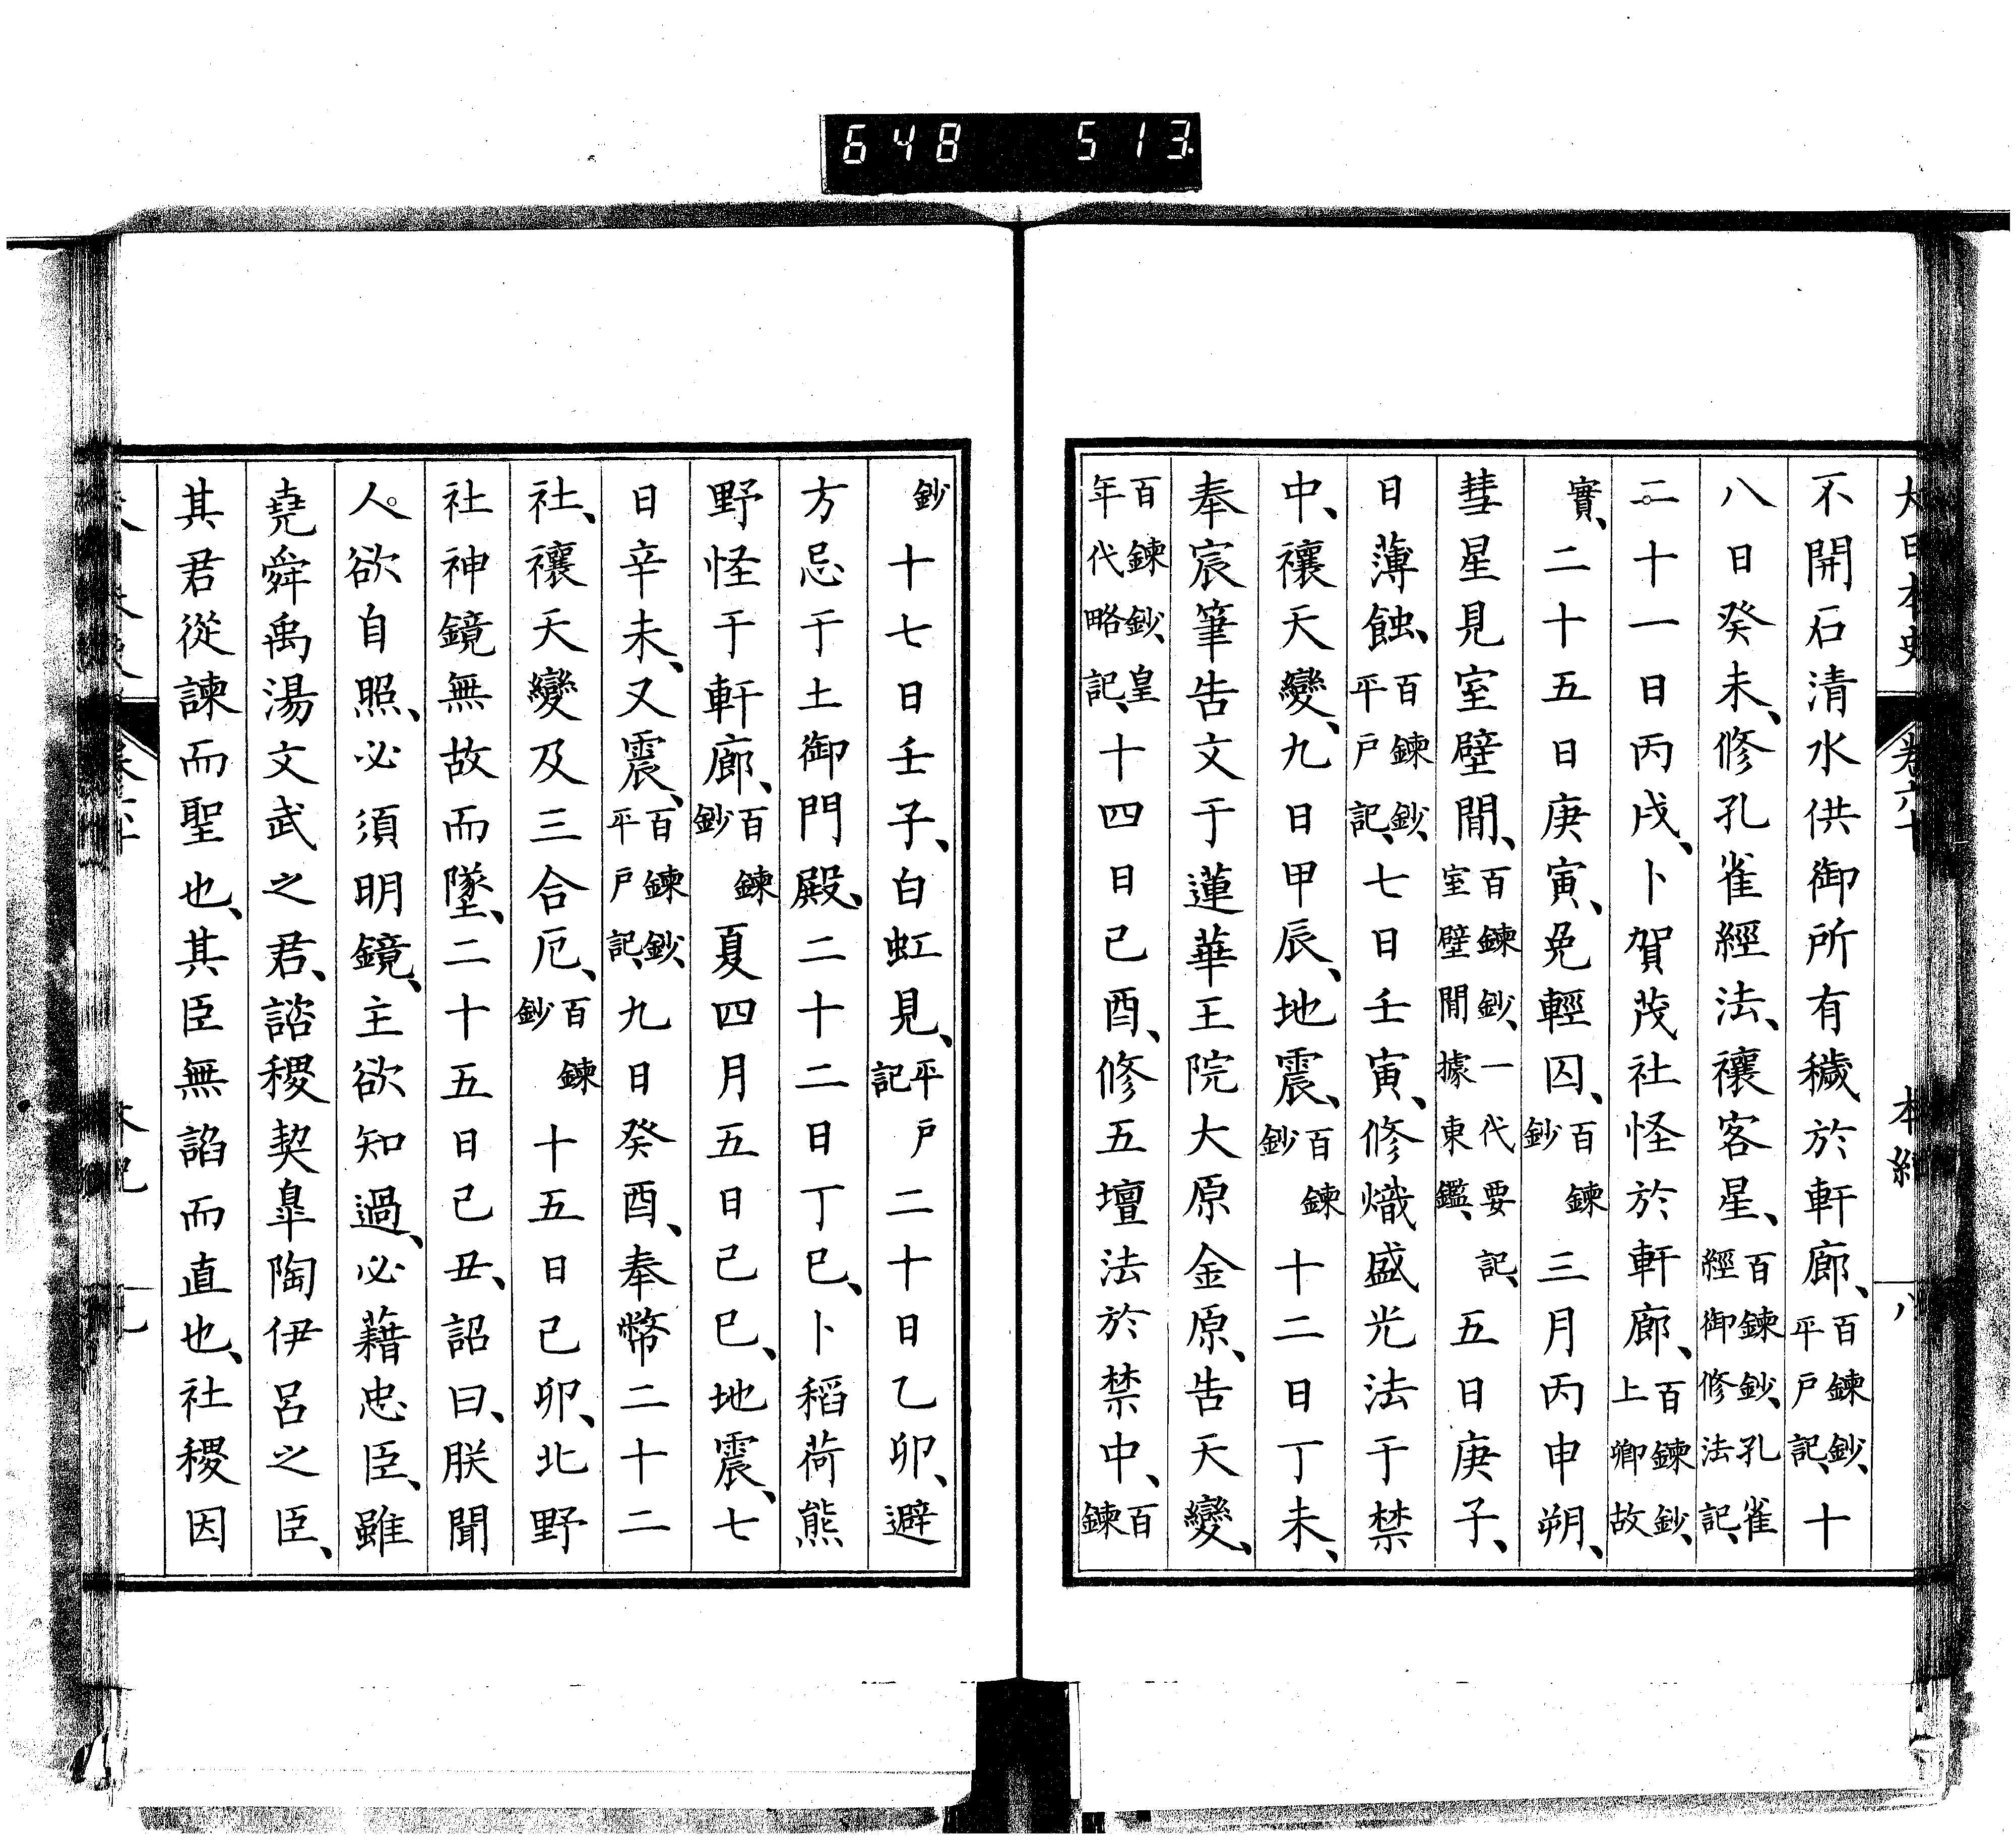 648 513
大日本史 卷六十 本紀 八
不開石清水供御所有穢於軒廊、百鍊鈔、平戶記、十
八日癸未、修孔雀經法、禳客星、百鍊鈔、孔雀經御修法記、
二十一日丙戌、卜賀茂社怪於軒廊、百鍊鈔、上卿故
實、二十五日庚寅、免輕囚、百鍊鈔三月丙申朔、
彗星見室壁間、百鍊鈔、一代要記、室壁間據東鑑、五日庚子、
日薄蝕、百鍊鈔、平戶記、七日壬寅、修熾盛光法于禁
中、禳天變、九日甲辰、地震、百鍊鈔十二日丁未、
奉宸筆告文于蓮華王院大原金原、告天變、
百鍊鈔、皇年代略記、十四日己酉、修五壇法於禁中、百鍊
鈔十七日壬子、白虹見、平戶記二十日乙卯、避
方忌于土御門殿、二十二日丁巳、卜稻荷熊
野怪于軒廊、百鍊鈔夏四月五日己巳、地震、七
日辛未、又震、百鍊鈔、平戶記、九日癸酉、奉幣二十二
社、禳天變及三合厄、百鍊鈔十五日己卯、北野
社神鏡無故而墜、二十五日己丑、詔曰、朕聞
人。欲自照、必須明鏡、主欲知過、必藉忠臣、雖
堯舜禹湯文武之君、諮稷契皐陶伊呂之臣、
其君從諫而聖也、其臣無諂而直也、社稷因